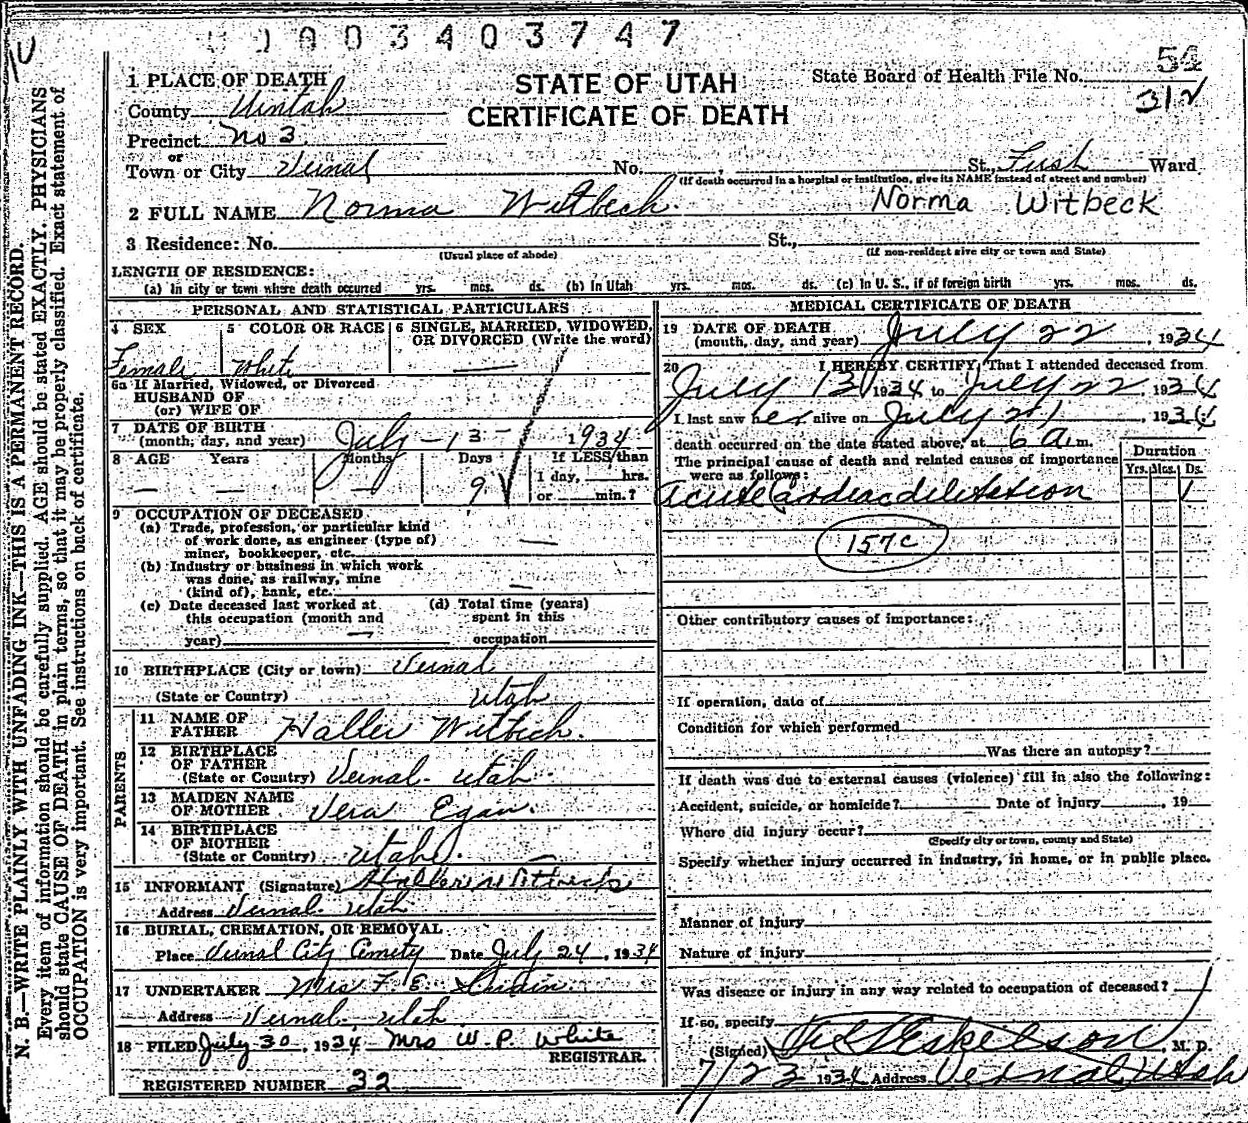 0003403747
54
1 PLACE OF DEATH
STATE OF UTAH
State Board of Health File No. 312
County Uintah
CERTIFICATE OF DEATH
Precinct No 3
or
Town or City Vernal No. St., First Ward
(If death occurred in a hospital or institution, give its NAME instead of street and number)
2 FULL NAME Norma Witbeck. Norma Witbeck
3 Residence: No. St.,
(Usual place of abode) (If non-resident give city or town and State)
LENGTH OF RESIDENCE:
(a) In city or town where death occurred yrs. mos. ds. (b) In Utah yrs. mos. ds. (c) In U. S., if of foreign birth yrs. mos. ds.
PERSONAL AND STATISTICAL PARTICULARS
4 SEX 5 COLOR OR RACE 6 SINGLE, MARRIED, WIDOWED, OR DIVORCED (Write the word)
Female White —
6a If Married, Widowed, or Divorced
HUSBAND OF
(or) WIFE OF
7 DATE OF BIRTH
(month, day, and year) July - 13 - 1934
8 AGE Years Months Days If LESS than
— — — 9 1 day, hrs.
or min.?
9 OCCUPATION OF DECEASED
(a) Trade, profession, or particular kind
of work done, as engineer (type of)
miner, bookkeeper, etc. —
(b) Industry or business in which work
was done, as railway, mine
(kind of), bank, etc. —
(c) Date deceased last worked at (d) Total time (years)
this occupation (month and spent in this
year) — occupation
10 BIRTHPLACE (City or town) Vernal
(State or Country) Utah
PARENTS
11 NAME OF
FATHER Haller Witbeck.
12 BIRTHPLACE
OF FATHER
(State or Country) Vernal. Utah
13 MAIDEN NAME
OF MOTHER Vera Egan.
14 BIRTHPLACE
OF MOTHER
(State or Country) Utah
15 INFORMANT (Signature) Haller Witbeck
Address Vernal. Utah
16 BURIAL, CREMATION, OR REMOVAL
Place Vernal City Cemetery Date July 24, 1934
17 UNDERTAKER Mrs F. E.
Address Vernal, Utah
18 FILED July 30, 1934 Mrs W. P. White
REGISTRAR.
REGISTERED NUMBER 32
MEDICAL CERTIFICATE OF DEATH
19 DATE OF DEATH
(month, day, and year) July 22, 1934
20 I HEREBY CERTIFY, That I attended deceased from
July 13 1934 to July 22, 1934
I last saw her alive on July 21, 1934
death occurred on the date stated above, at 6 a.m.
The principal cause of death and related causes of importance
were as follows: Duration
Yrs. Mos. Ds.
acute Cardiac diletation 1
157c
Other contributory causes of importance:
If operation, date of
Condition for which performed
Was there an autopsy?
If death was due to external causes (violence) fill in also the following:
Accident, suicide, or homicide? Date of injury , 19
Where did injury occur?
(Specify city or town, county and State)
Specify whether injury occurred in industry, in home, or in public place.
Manner of injury
Nature of injury
Was disease or injury in any way related to occupation of deceased?
If so, specify
(Signed) Eskelson M. D.
7/23 1934 Address Vernal, Utah
N. B.—WRITE PLAINLY WITH UNFADING INK—THIS IS A PERMANENT RECORD.
Every item of information should be carefully supplied. AGE should be stated EXACTLY. PHYSICIANS
should state CAUSE OF DEATH in plain terms, so that it may be properly classified. Exact statement of
OCCUPATION is very important. See instructions on back of certificate.